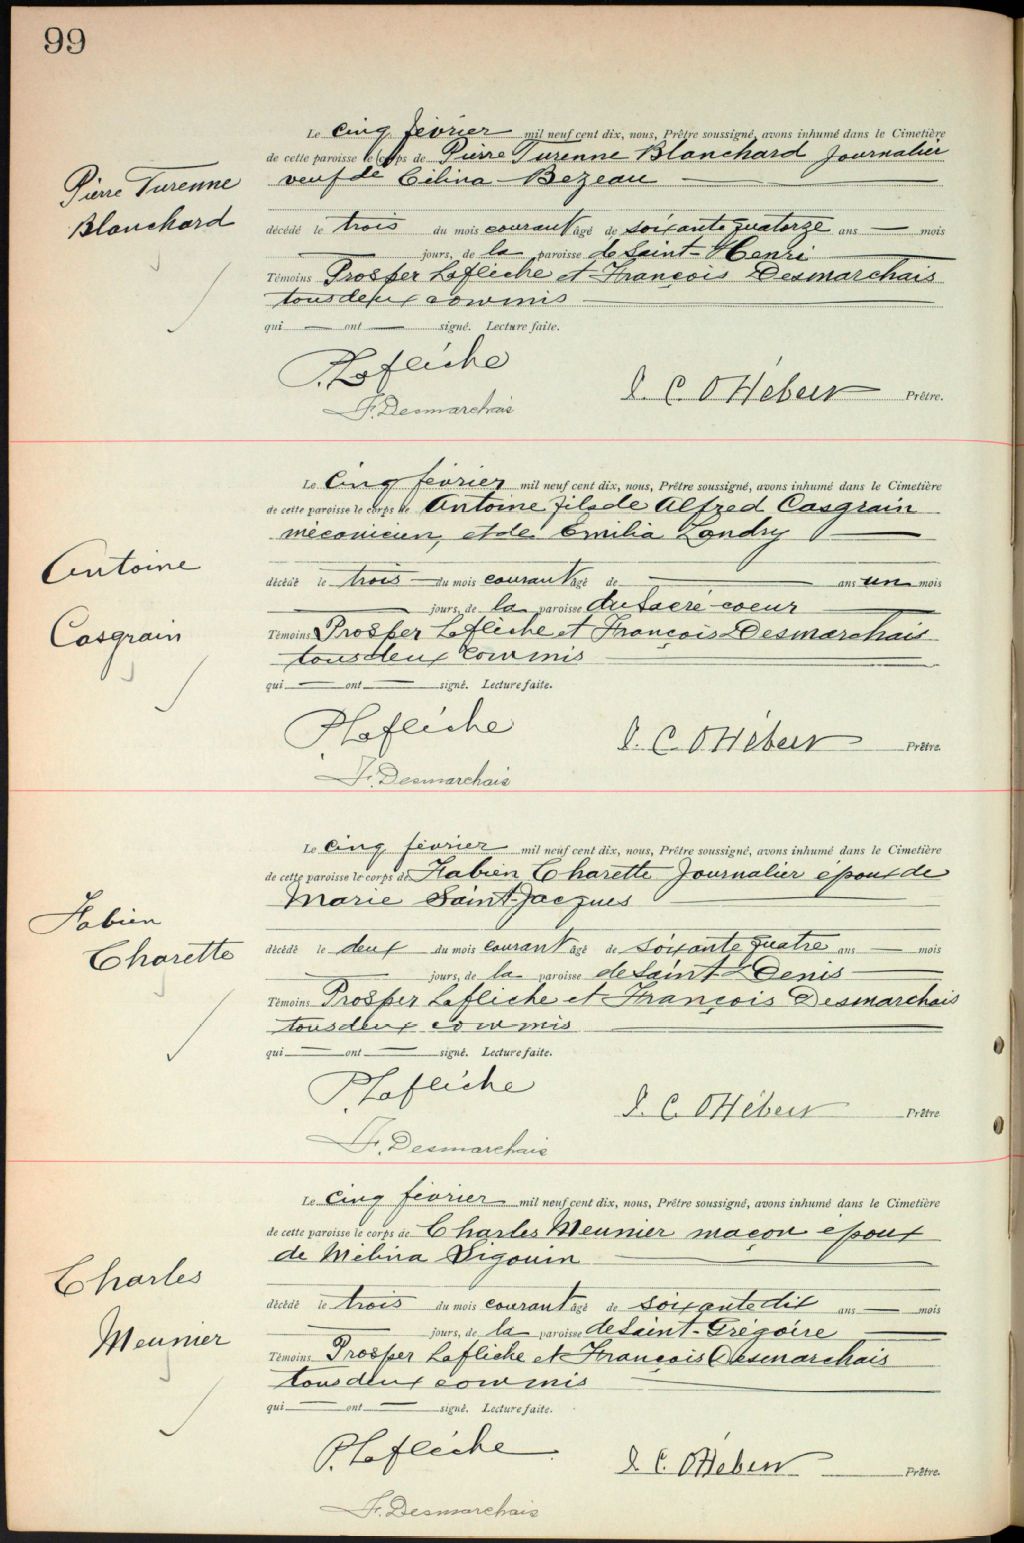 99
Le cinq février mil neuf cent dix, nous, Prêtre soussigné, avons inhumé dans le Cimetière
de cette paroisse le corps de Pierre Turenne Blanchard Journalier
veuf de Célina Bezeau
Pierre Turenne
Blanchard
décédé le trois du mois courant âgé de soixante quatorze ans — mois
jours, de la paroisse de Saint-Henri
Témoins Prosper Laflèche et François Desmarchais
tous deux commis
qui — ont — signé. Lecture faite.
P. Laflèche
J. C. O Hébert Prêtre.
F. Desmarchais
Le Cinq février mil neuf cent dix, nous, Prêtre soussigné, avons inhumé dans le Cimetière
de cette paroisse le corps de Antoine fils de Alfred Casgrain
mécanicien, et de Emilia Landry
Antoine
Casgrain
décédé le trois du mois courant âgé de — ans un mois
jours, de la paroisse du Sacré-coeur
Témoins Prosper Laflèche et François Desmarchais
tous deux commis
qui — ont — signé. Lecture faite.
P. Laflèche
J. C. O Hébert Prêtre.
F. Desmarchais
Le cinq février mil neuf cent dix, nous, Prêtre soussigné, avons inhumé dans le Cimetière
de cette paroisse le corps de Fabien Charette Journalier époux de
Marie Saint-Jacques
Fabien
Charette
décédé le deux du mois courant âgé de soixante quatre ans — mois
jours, de la paroisse de Saint-Denis
Témoins Prosper Laflèche et François Desmarchais
tous deux commis
qui — ont — signé. Lecture faite.
P. Laflèche
J. C. O Hébert Prêtre
F. Desmarchais
Le Cinq février mil neuf cent dix, nous, Prêtre soussigné, avons inhumé dans le Cimetière
de cette paroisse le corps de Charles Meunier maçon époux
de Mélina Sigouin
Charles
Meunier
décédé le trois du mois courant âgé de soixante dix ans — mois
jours, de la paroisse de Saint-Grégoire
Témoins Prosper Laflèche et François Desmarchais
tous deux commis
qui — ont — signé. Lecture faite.
P. Laflèche
J. C. O Hébert Prêtre.
F. Desmarchais